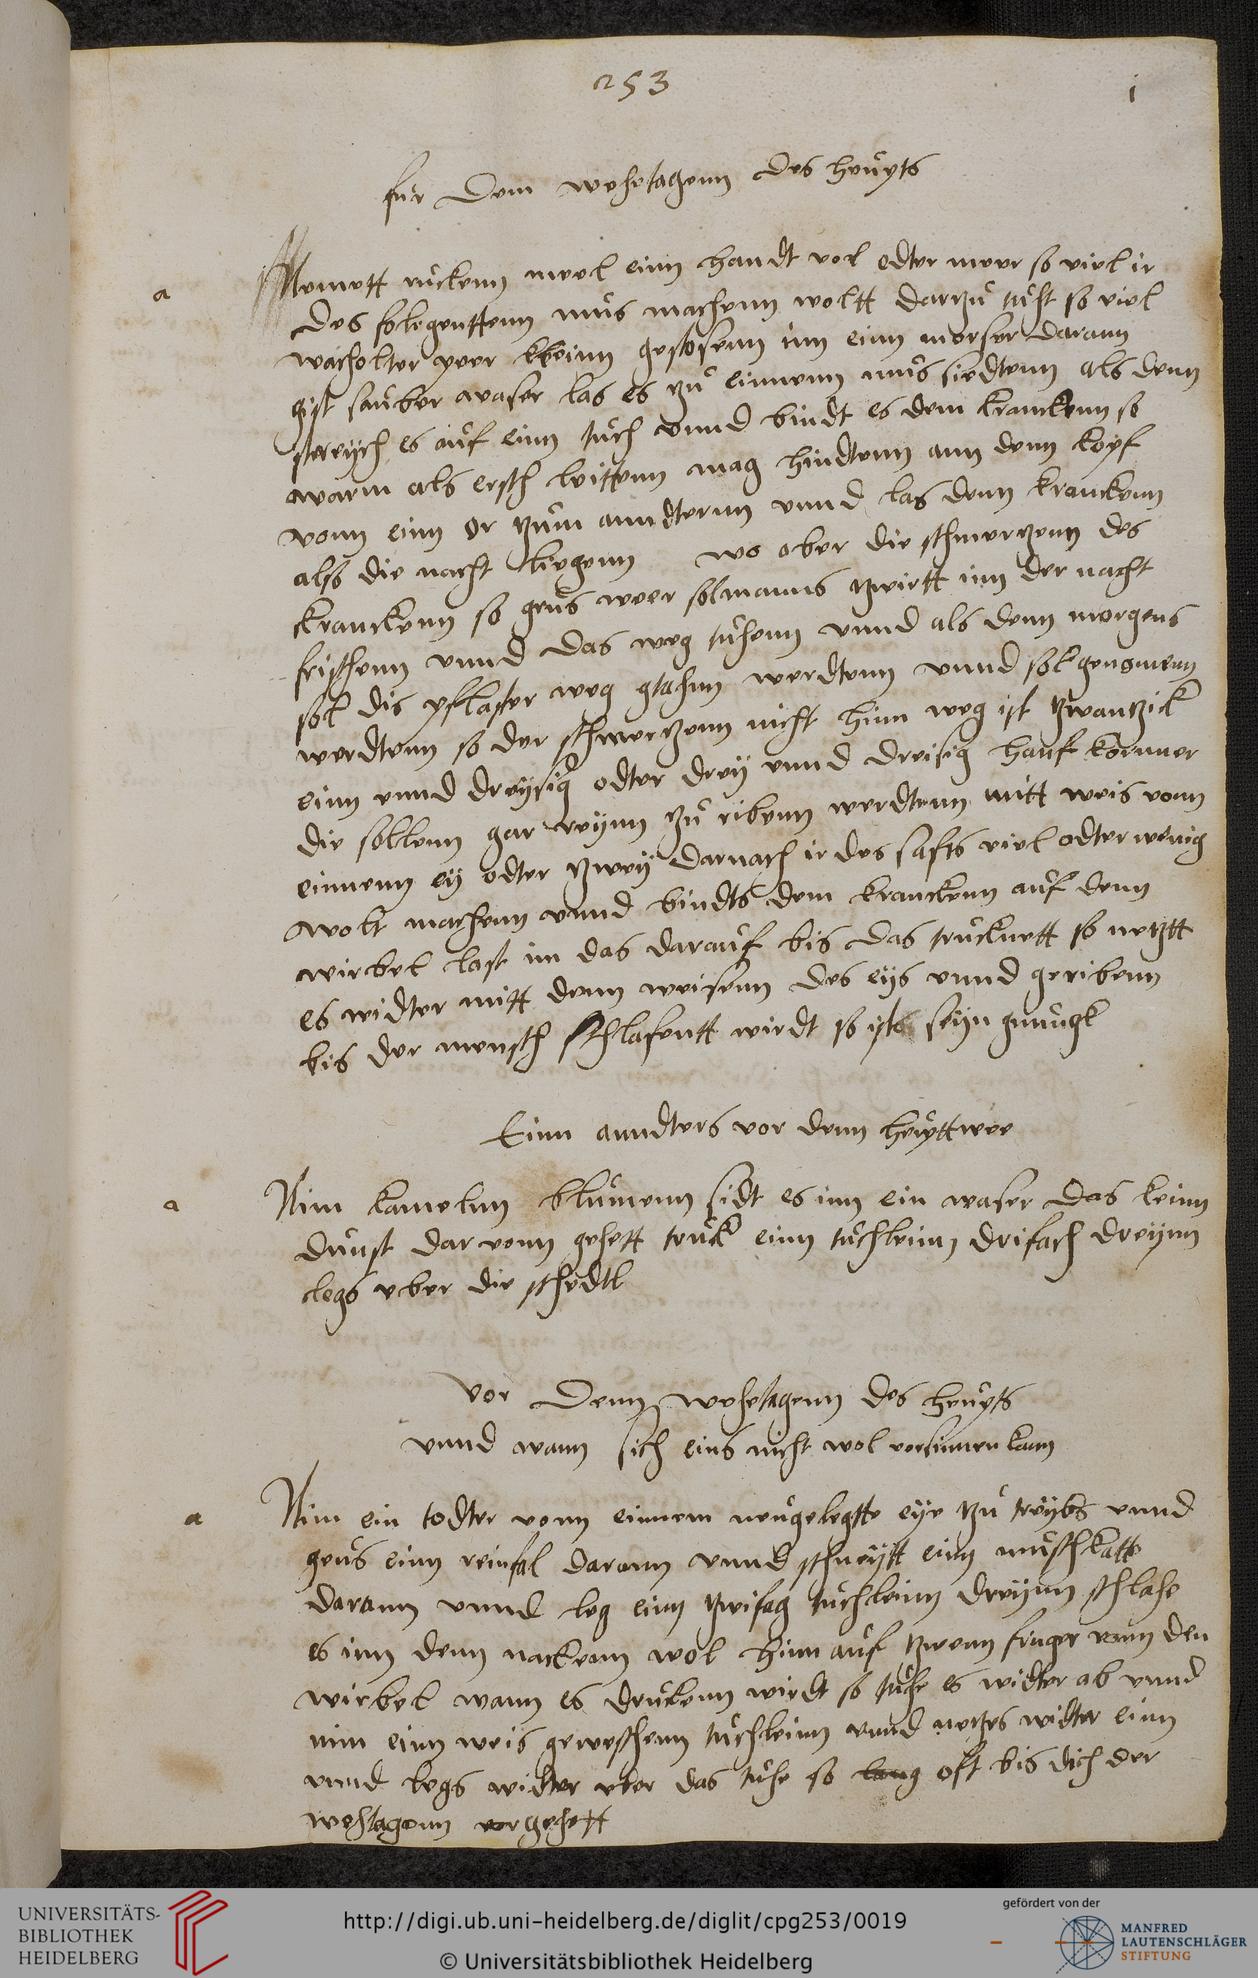 253
i
für dem wehetagenn des heupts
a
Nemett rückenn meel einn handt vol odter meer so viel ir
des folegenttenn mus machenn woltt dartzu thut so viel
wacholter peer kleinn gestosenn inn einn morser darann
gist sauber waser las es zu einnem mus siedtenn als denn
streych es auf einn tuch vnnd bindt es dem kranckenn so
warm als ersth leittenn mag hindtenn ann denn kopf
vonn einn or zum anndternn vnnd las denn kranckenn
also die nacht liegenn wo aber die schmertzenn des
kranckenn so gros weer sol manns zwirtt inn der nacht
frischenn vnnd das weg tuhenn vnnd als denn morgens
sol dis pflaster weg gtahnn werdtenn vnnd sol genomenn
werdtenn so der schmertzenn nicht hinn weg ist zwantzick
einn vnnd dreysig odter drey vnnd dreisig hanf kornner
die sollenn gar reynn zu ribenn werdtenn mitt weis vonn
einnem ey odter zwey darnach ir des safts viel odter wenig
wolt machenn vnnd bindts dem kranckenn auf denn
wirbel last im das darauf bis das trucknett so netztt
es widter mitt denn weisenn des eys vnnd geribenn
bis der mensch schlafentt wirdt so ists seyn gnungk
Einn anndters vor denn heupttwee
a
Nim kamelnn blumenn sidt es inn ein waser das keinn
dunst dar vonn gehett truck einn tuchleinn drifach dreynn
legs vber die schedtl
vor denn wehetagenn des heupts
vnnd wann sich eins nicht wol versinnen kann
a
Nim ein todter vonn einnem neugelegtte eye zu treybs vnnd
geus einn reinfal darann vnnd schneytt einn muschkatt
darann vnnd leg einn zwifag tuchleinn dreynn schlahe
es inn denn nackenn wol hinn auf zwenn finger vonn den
wirbel wann es druckenn wirdt so tuhe es widter ab vnnd
nim einn weis geweschenn tuchleinn vnnd netzes widter einn
vnnd legs widter vber das tuhe so lang oft bis dich der
wehtagenn vorgehett
UNIVERSITÄTS-
BIBLIOTHEK
HEIDELBERG
http://digi.ub.uni-heidelberg.de/diglit/cpg253/0019
© Universitätsbibliothek Heidelberg
gefördert von der
MANFRED
LAUTENSCHLÄGER
STIFTUNG